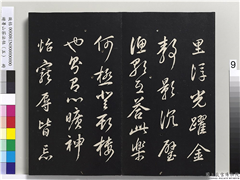 里浮光躍金
靜影沉璧
漁歌互答此樂
何極登斯樓
也則有心曠神
怡寵辱皆忘
9